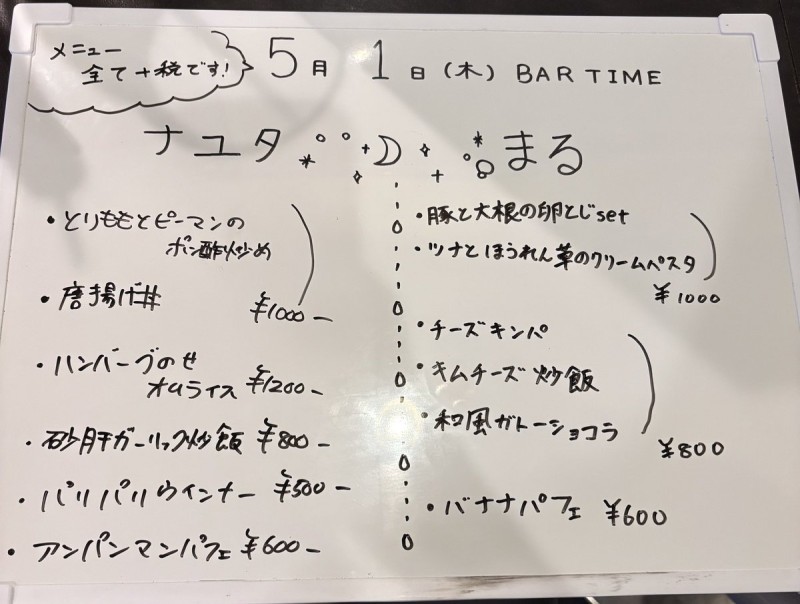 メニュー
全て+税です!
5月 1日(木) BAR TIME
ナユタ まる
・とりももとピーマンの
ポン酢炒め
・唐揚げ丼
¥1000-
・ハンバーグのせ
オムライス ¥1200-
・砂肝ガーリック炒飯 ¥800-
・パリパリウインナー ¥500-
・アンパンマンパフェ ¥600-
・豚と大根の卵とじset
・ツナとほうれん草のクリームパスタ
¥1000
・チーズキンパ
・キムチーズ炒飯
・和風ガトーショコラ
¥800
・バナナパフェ ¥600